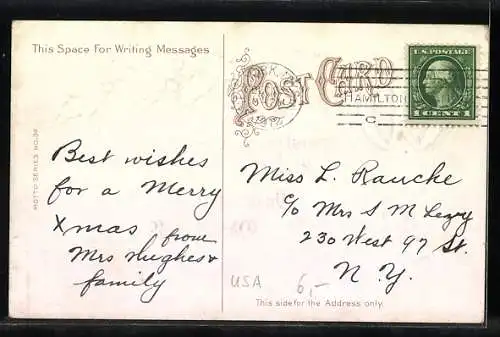 This Space For Writing Messages
POST CARD
U.S. POSTAGE
1 CENT 1
HAMILTON
C
MOTTO SERIES NO. 34
Best wishes
for a Merry
Xmas from
Mrs Hughes &
family
Miss L. Rauche
c/o Mrs S M
230 West 97 St.
N. Y.
USA 6,-
This side for the Address only.